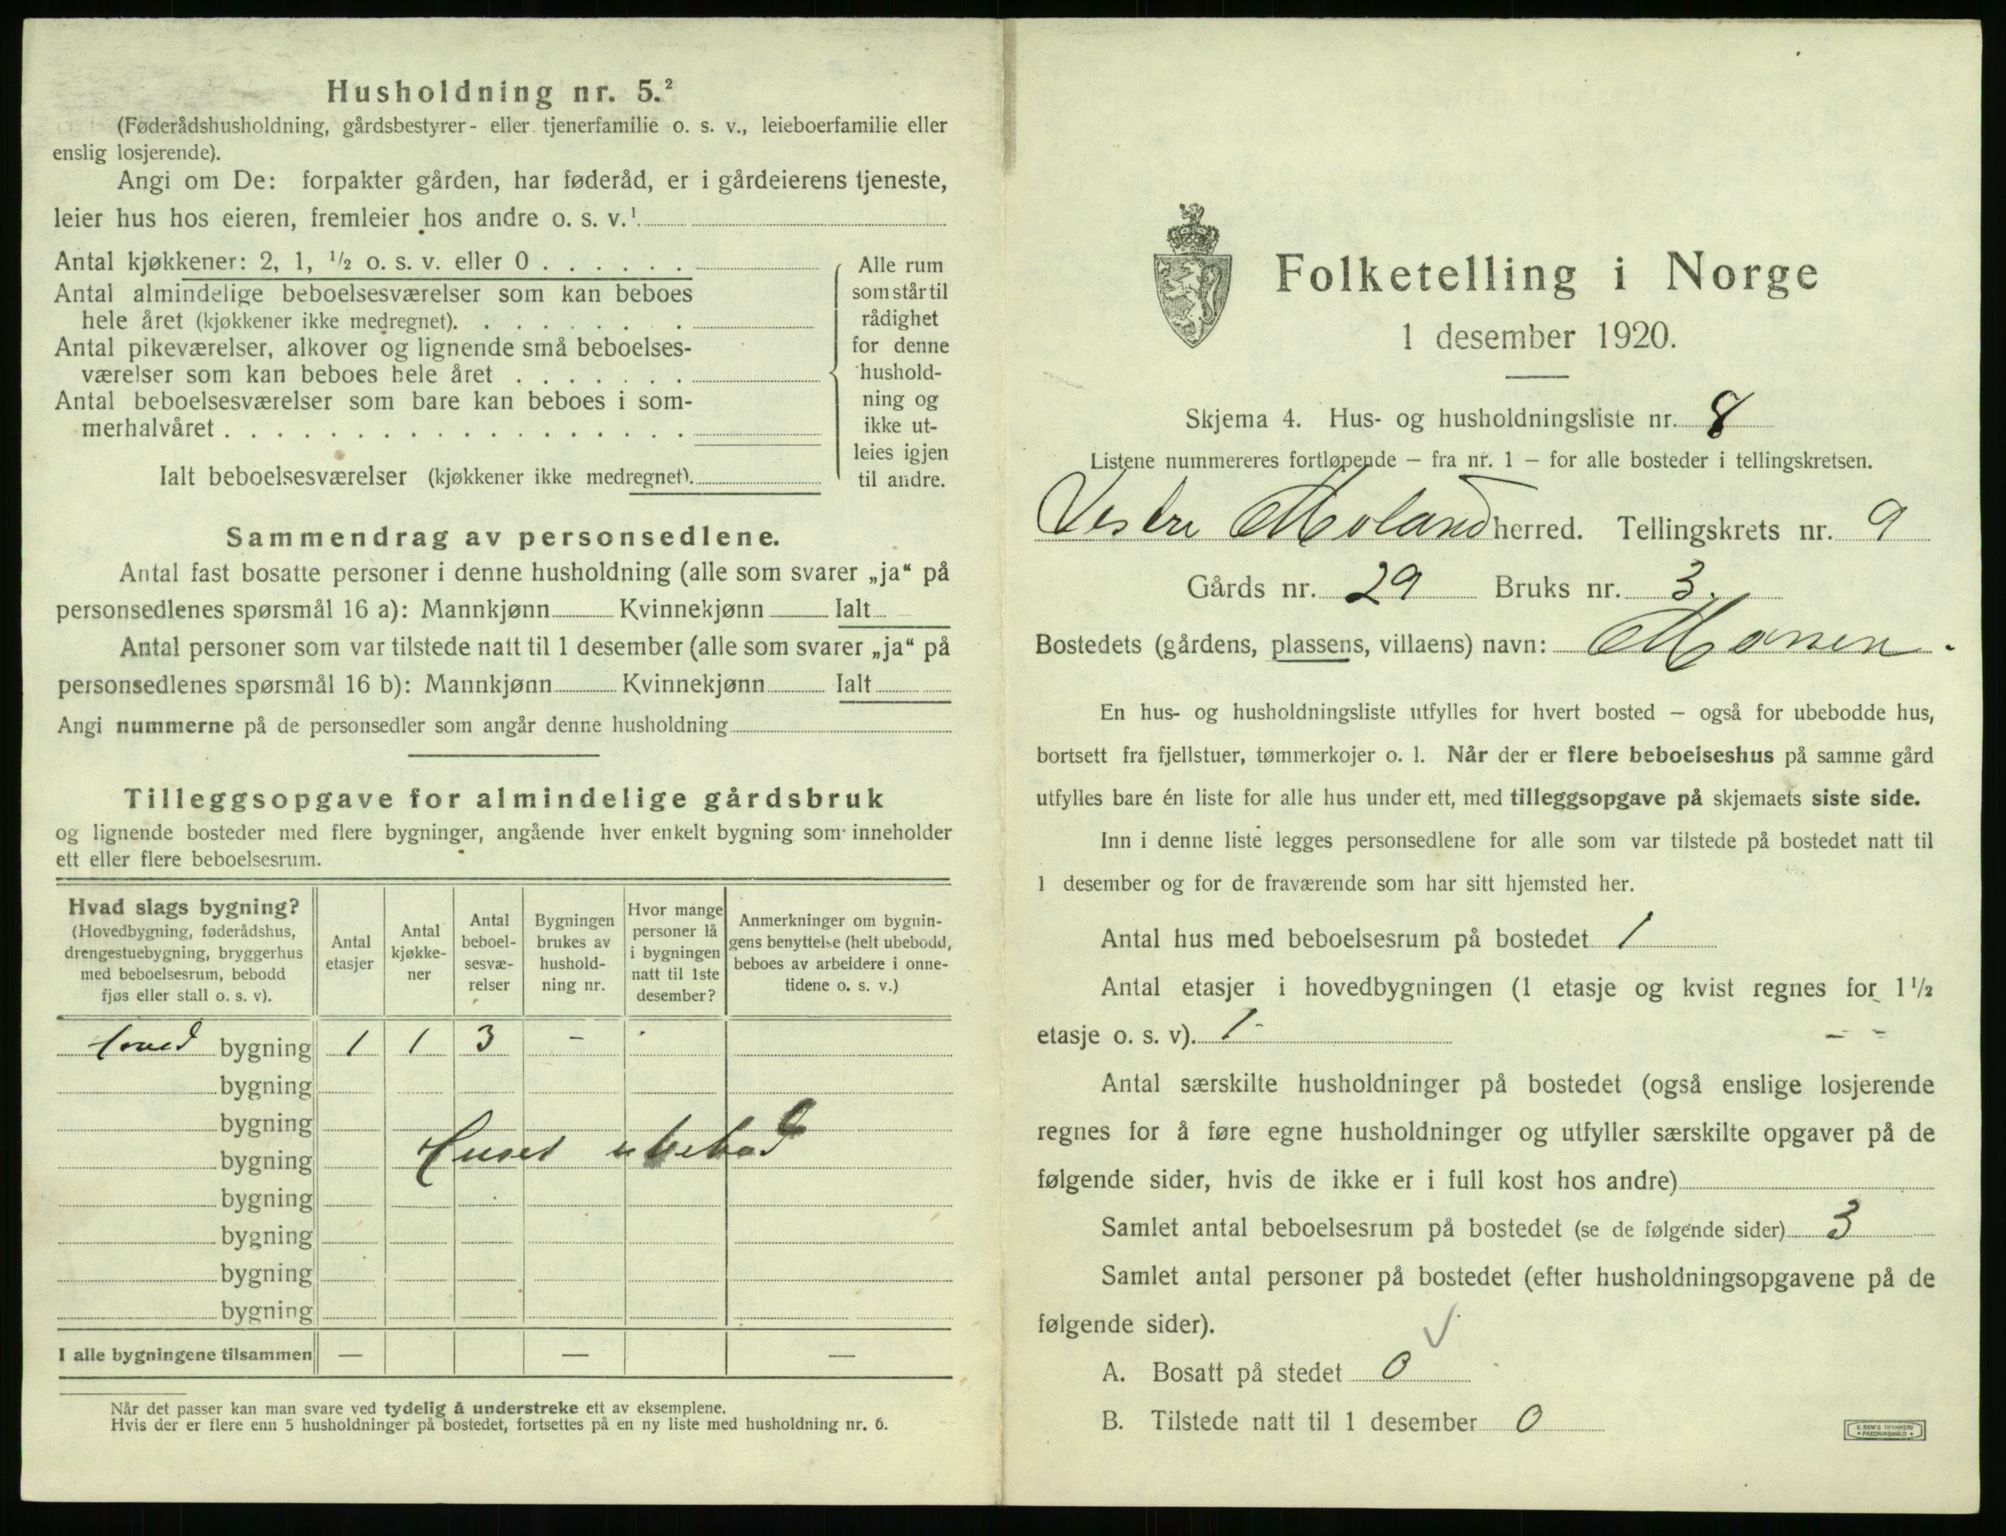 Husholdning nr. 5.²
(Føderådshusholdning, gårdsbestyrer- eller tjenerfamilie o. s. v., leieboerfamilie eller
enslig losjerende).
Angi om De: forpakter gården, har føderåd, er i gårdeierens tjeneste,
leier hus hos eieren, fremleier hos andre o. s. v.¹
Antal kjøkkener: 2, 1, ½ o. s. v. eller 0 . . . . . .
Antal almindelige beboelsesværelser som kan beboes
hele året (kjøkkener ikke medregnet). . . . . . . . .
Antal pikeværelser, alkover og lignende små beboelses-
værelser som kan beboes hele året . . . . . . .
Antal beboelsesværelser som bare kan beboes i som-
merhalvåret . . . . . . . . . . . . . . . . . .
Ialt beboelsesværelser (kjøkkener ikke medregnet).
Alle rum
som står til
rådighet
for denne
hushold-
ning og
ikke ut-
leies igjen
til andre.
Sammendrag av personsedlene.
Antal fast bosatte personer i denne husholdning (alle som svarer „ja“ på
personsedlenes spørsmål 16 a): Mannkjønn Kvinnekjønn Ialt
Antal personer som var tilstede natt til 1 desember (alle som svarer „ja“ på
personsedlenes spørsmål 16 b): Mannkjønn Kvinnekjønn Ialt
Angi nummerne på de personsedler som angår denne husholdning
Tilleggsopgave for almindelige gårdsbruk
og lignende bosteder med flere bygninger, angående hver enkelt bygning som inneholder
ett eller flere beboelsesrum.
Hvad slags bygning?
(Hovedbygning, føderådshus,
drengestuebygning, bryggerhus
med beboelsesrum, bebodd
fjøs eller stall o. s. v).
Antal
etasjer
Antal
kjøkke-
ner
Antal
beboel-
sesvæ-
relser
Bygningen
brukes av
hushold-
ning nr.
Hvor mange
personer lå
i bygningen
natt til 1ste
desember?
Anmerkninger om bygnin-
gens benyttelse (helt ubebodd,
beboes av arbeidere i onne-
tidene o. s. v.)
Hoved bygning 1 1 3 -
bygning
bygning
bygning Huset ubebod
bygning
bygning
bygning
bygning
I alle bygningene tilsammen — — —
Når det passer kan man svare ved tydelig å understreke ett av eksemplene.
Hvis der er flere enn 5 husholdninger på bostedet, fortsettes på en ny liste med husholdning nr. 6.
Folketelling i Norge
1 desember 1920.
Skjema 4. Hus- og husholdningsliste nr. 8
Listene nummereres fortløpende — fra nr. 1 — for alle bosteder i tellingskretsen.
Vestre Moland herred. Tellingskrets nr. 9
Gårds nr. 29 Bruks nr. 3.
Bostedets (gårdens, plassens, villaens) navn:
En hus- og husholdningsliste utfylles for hvert bosted — også for ubebodde hus,
bortsett fra fjellstuer, tømmerkojer o. l. Når der er flere beboelseshus på samme gård
utfylles bare én liste for alle hus under ett, med tilleggsopgave på skjemaets siste side.
Inn i denne liste legges personsedlene for alle som var tilstede på bostedet natt til
1 desember og for de fraværende som har sitt hjemsted her.
Antal hus med beboelsesrum på bostedet 1
Antal etasjer i hovedbygningen (1 etasje og kvist regnes for 1½
etasje o. s. v). 1 -
Antal særskilte husholdninger på bostedet (også enslige losjerende
regnes for å føre egne husholdninger og utfyller særskilte opgaver på de
følgende sider, hvis de ikke er i full kost hos andre)
Samlet antal beboelsesrum på bostedet (se de følgende sider) 3
Samlet antal personer på bostedet (efter husholdningsopgavene på de
følgende sider).
A. Bosatt på stedet 0
B. Tilstede natt til 1 desember 0